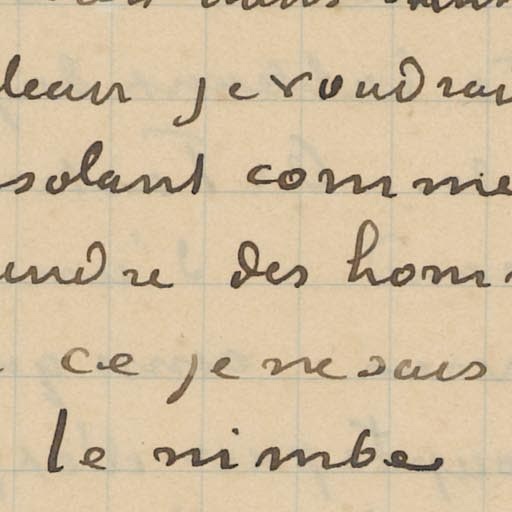 leau je voudrai
solant comme
endre des hom
ce je ne sais
le nimbe